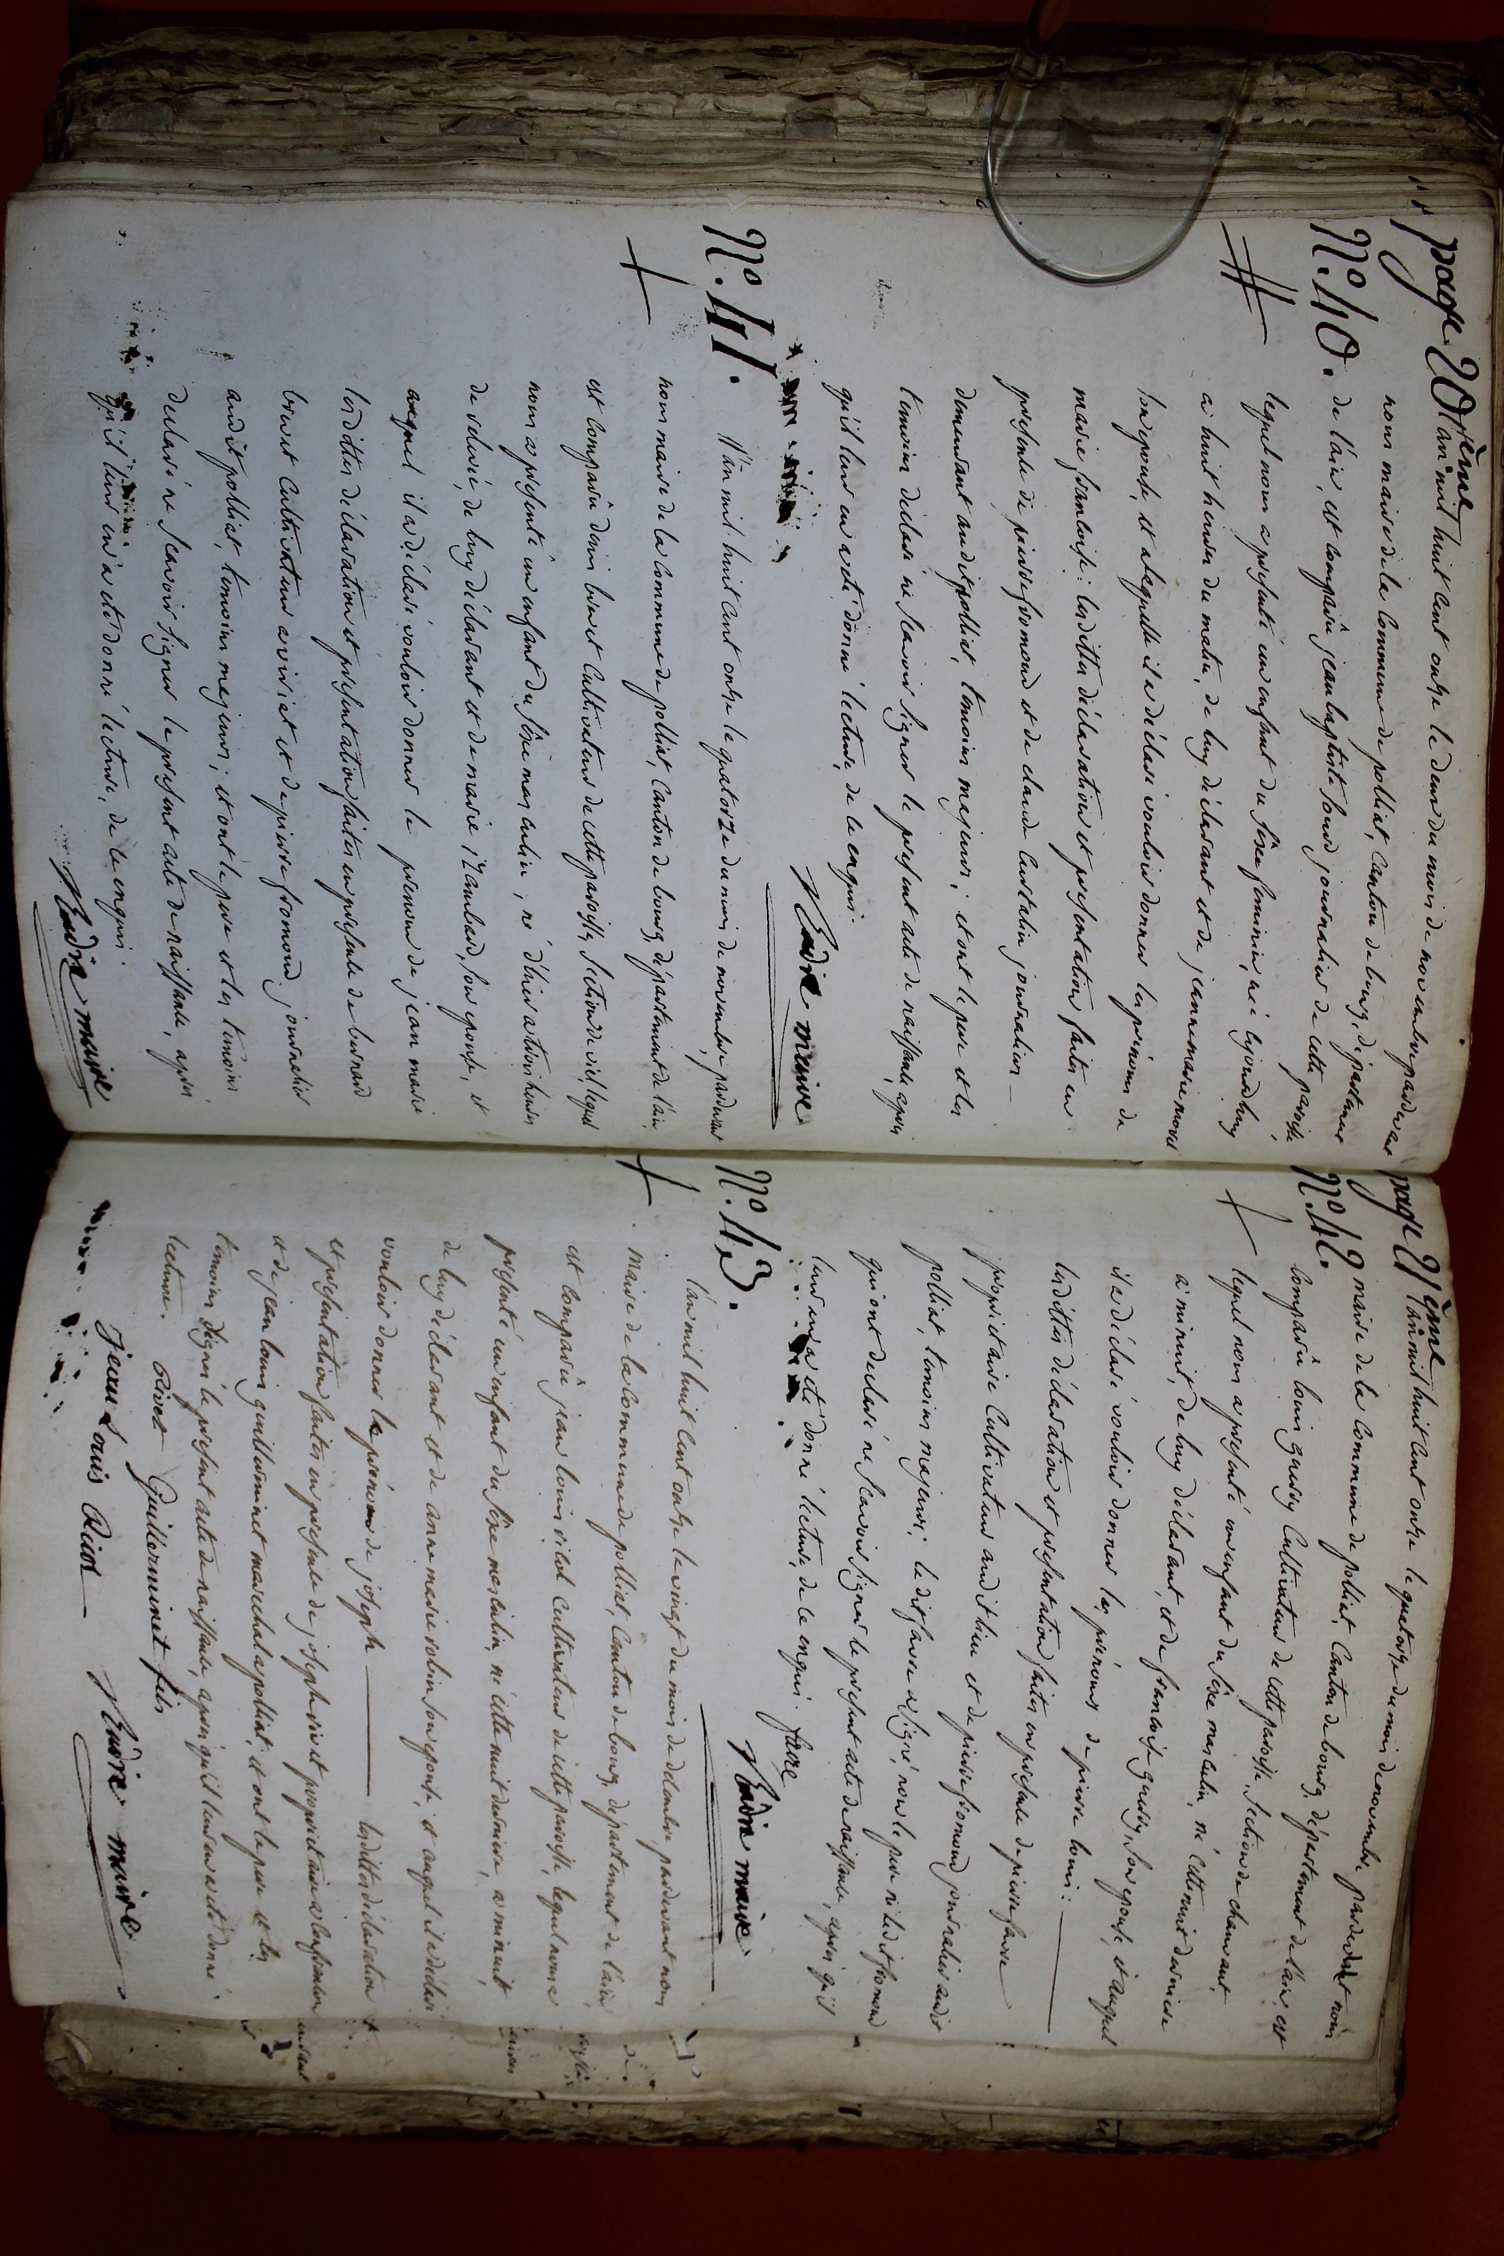 page 20ème
N.º 40.
L'an mil huit cent onze le deux du mois de novembre, pardevant
nous maire de la Commune de polliat, Canton de bourg, département
de l'ain, est comparû jean baptiste journalier de cette paroisse
lequel nous a présenté un enfant du sêxe feminin, né aujourdhuy
a huit heures du matin, de luy déclarant et de jeanne marie morel
son epouse, et a laquelle il a déclaré vouloir donner les prénoms de
marie francoise: les dittes déclaration et presentation faites en
presence de pierre fromond et de claude journaliers
demeurant audit polliat, temoins majeurs; et ont le pere et les
temoins déclaré ne scavoir signer le present acte de naissance, apres
qu'il leur en a été donné lecture, de ce enquis.
maire
N.º 41.
L'an mil huit cent onze le quatorze du mois de novembre, pardevant
nous maire de la Commune de polliat, Canton de bourg, département de l'ain
est comparû denis Cultivateur de cette paroisse, section de lequel
nous a presenté un enfant du sêxe masculin, né d'hier a heures
de de luy déclarant et de marie son epouse, et
auquel il a déclaré vouloir donner le prénom de jean marie
les dittes déclaration et presentation faites en presence de bernard
Cultivateur a et de pierre fromond, journalier
audit polliat, temoins majeurs; et ont le pere et les temoins
declaré ne scavoir signer le present acte de naissance, apres
qu'il leur en a été donné lecture, de ce enquis.
maire
page 21ème
N.º 42.
L'an mil huit cent onze le quatorze du mois de novembre, pardevant nous
maire de la Commune de polliat, Canton de bourg, département de l'ain, est
comparû louis Cultivateur de cette paroisse, section de
lequel nous a presenté un enfant du sêxe masculin, né cette nuit derniere
a minuit, de luy déclarant, et de francoise son epouse, et auquel
il a déclaré vouloir donner les prénoms de pierre louis:
les dittes déclaration et presentation faites en presence de pierre favre
propriétaire Cultivateur audit lieu et de pierre fromond journalier audit
polliat, temoins majeurs; le dit favre a signé, non le pere ni le dit fromond
qui ont declaré ne scavoir signer le present acte de naissance, apres qu'il
leur en a été donné lecture, de ce enquis. favre
maire
N.º 43.
L'an mil huit cent onze le vingt du mois de pardevant nous
maire de la Commune de polliat, Canton de bourg, departement de l'ain,
est comparû jean louis Cultivateur de cette paroisse, lequel nous a
presenté un enfant du sêxe masculin, né cette nuit derniere, a minuit,
de luy déclarant et de anne marie robin son epouse, et auquel il a déclaré
vouloir donner le prénom de joseph les dittes déclaration
et presentation faites en presence de joseph propriétaire a
et de jean louis guillerminet marechal a polliat, et ont le pere et les
temoins signés le present acte de naissance, apres qu'il leur en a été donné
lecture. Guillerminet fils
jean Louis
maire